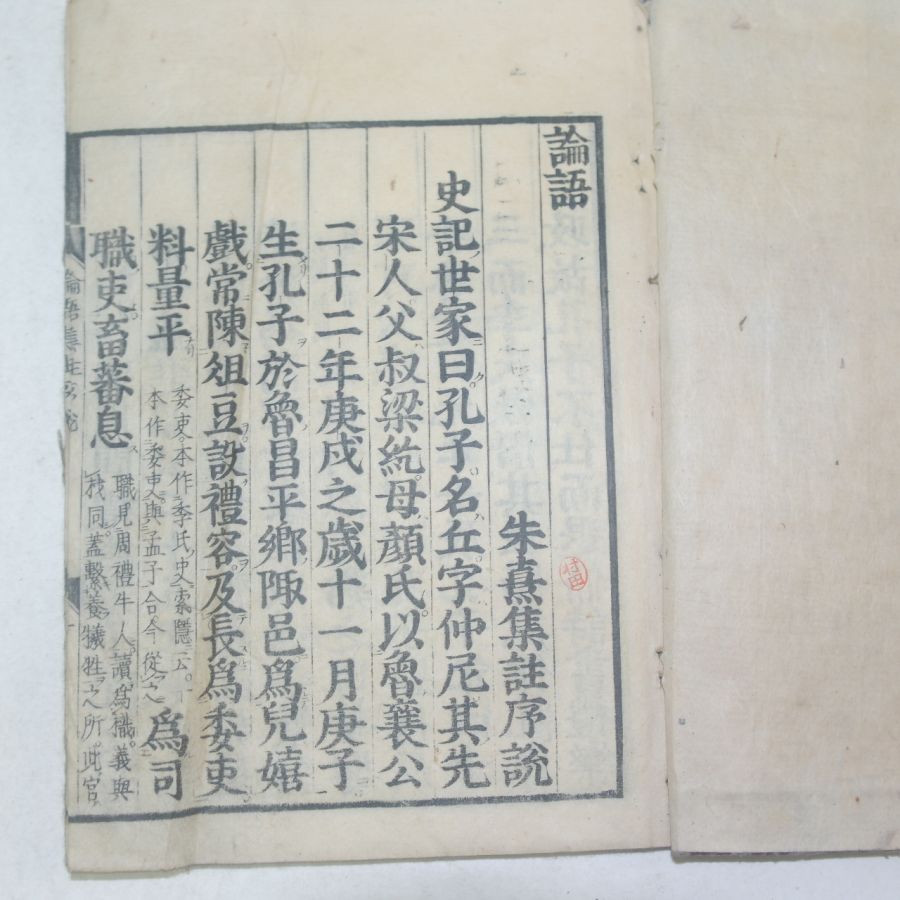 論語
朱熹集註序說
史記世家曰孔子名丘字仲尼其先
宋人父叔梁紇母顏氏以魯襄公
二十二年庚戌之歲十一月庚子
生孔子於魯昌平鄉陬邑爲兒嬉
戲常陳俎豆設禮容及長爲委吏
料量平委吏本作季氏史索隱云一
本作委吏與孟子合今從之爲司
職吏畜蕃息職見周禮牛人讀爲樴義與
我同蓋繫養犧牲之所此官
村田